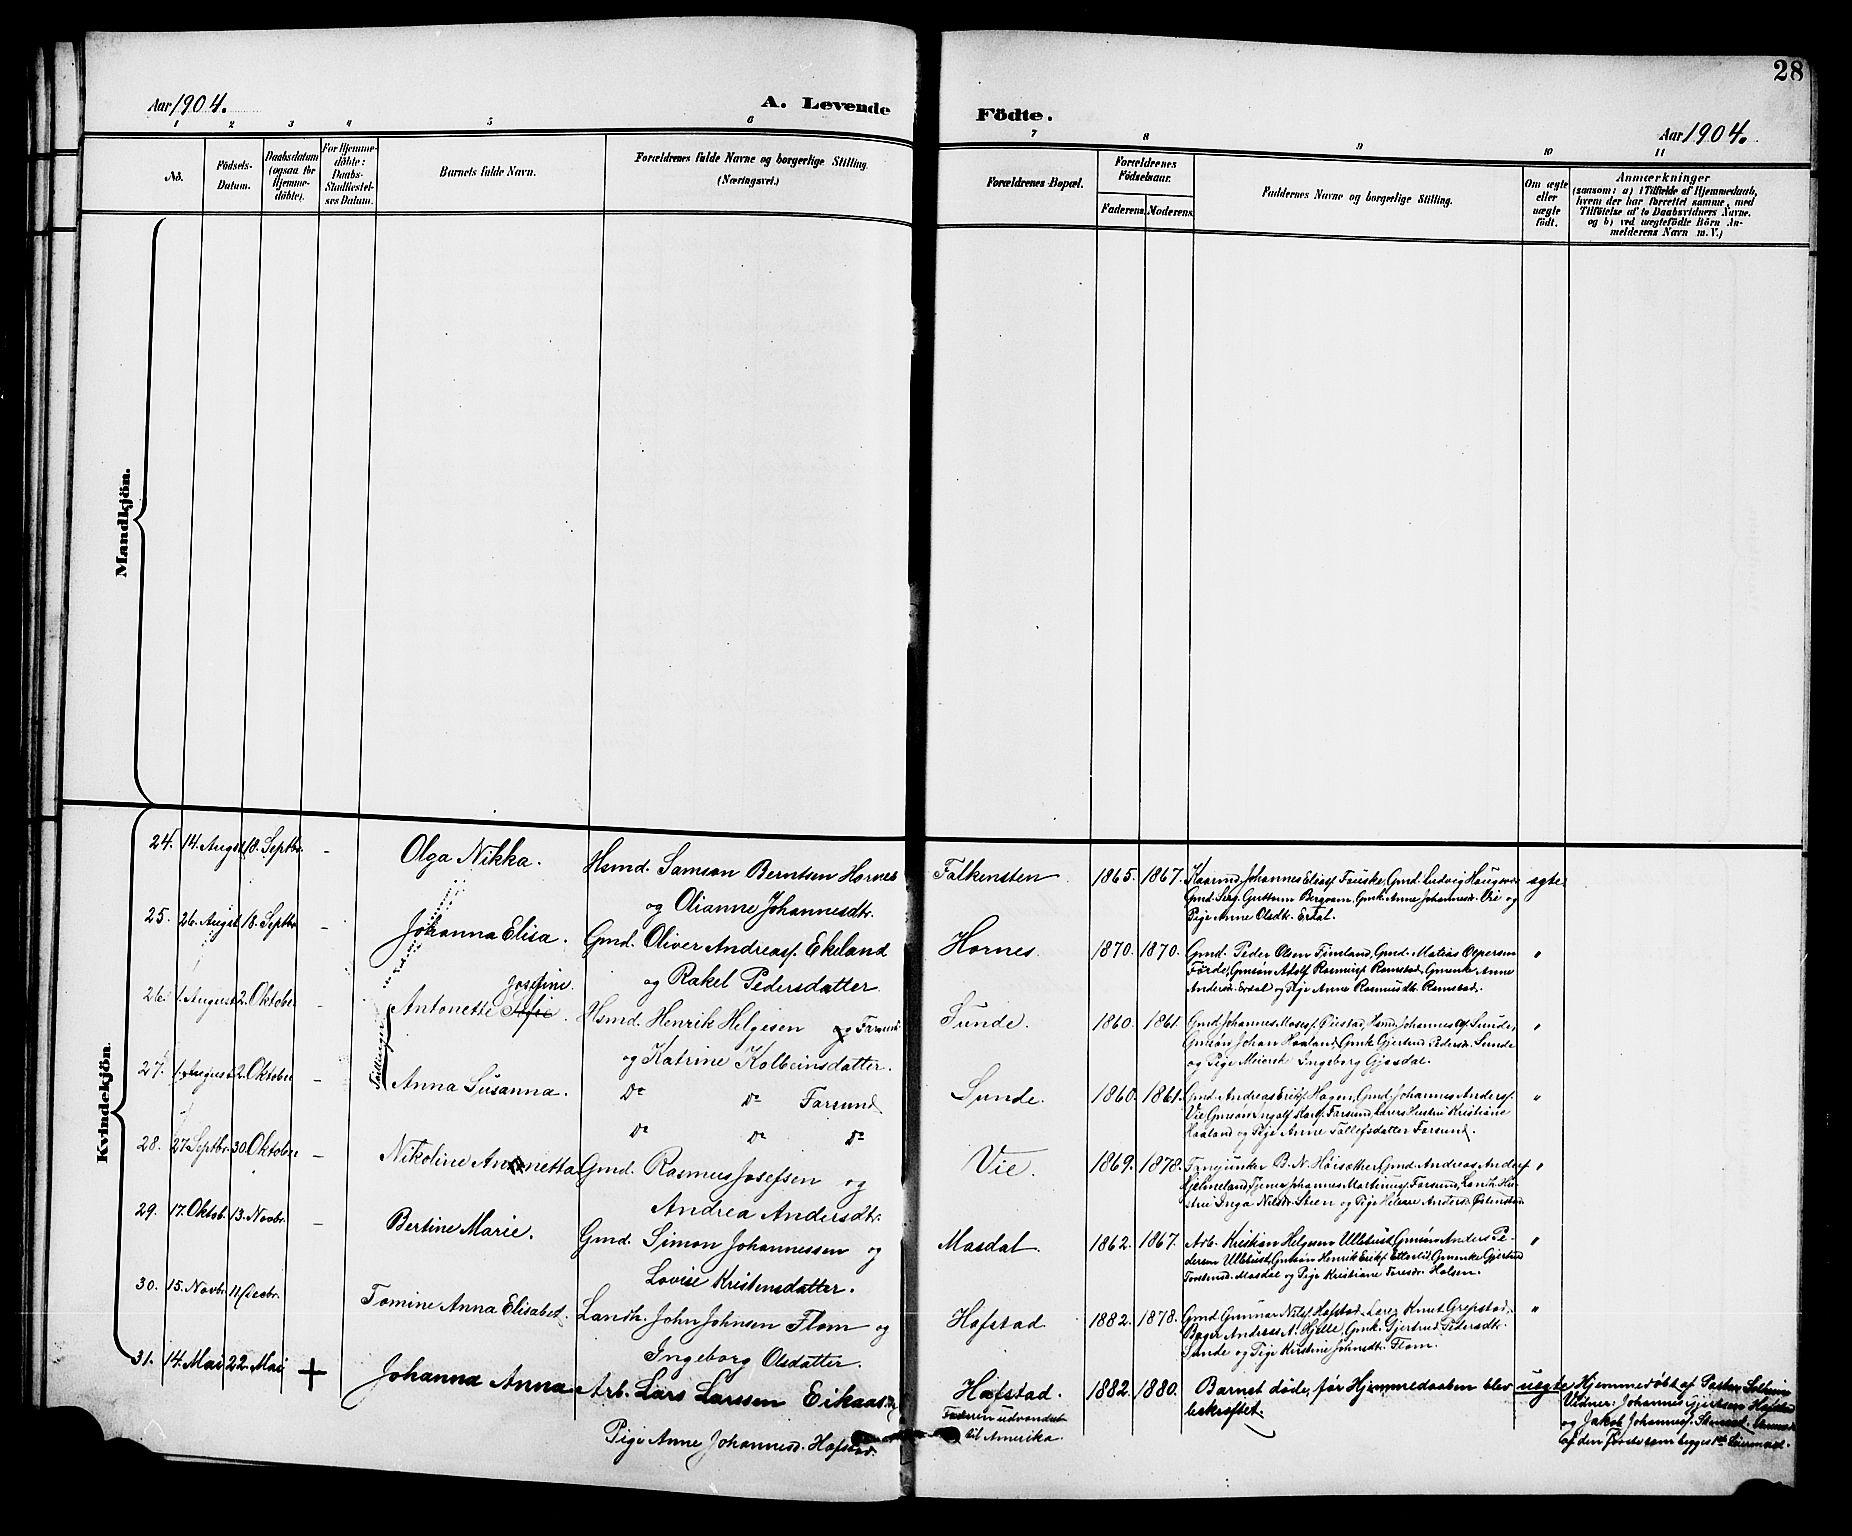 28
Aar 1904.
A. Levende
Födte.
Aar 1904.
1 2 3 4 5 6 7 8 9 10 11
No.
Födsels-
Datum.
Daabsdatum
(ogsaa for
Hjemme-
döbte).
For Hjemme-
döbte:
Daabs-
Stadfæstel-
ses Datum.
Barnets fulde Navn.
Forældrenes fulde Navne og borgerlige Stilling
(Næringsvei.)
Forældrenes Bopæl.
Forældrenes
Födselsaar.
Faderens.
Moderens.
Faddernes Navne og borgerlige Stilling.
Om ægte
eller
uægte
födt.
Anmærkninger
(saasom: a) i Tilfælde af Hjemmedaab,
hvem der har forrettet samme, med
Tilföielse af to Daabsvidners Navne.
og b) ved uægtefödte Börn An-
melderens Navn m. V.)
Mandkjön.
Kvindekjön.
24. 14. August 18. Septbr. -
Olga Nikka.
Hsmd. Samson Berntsen Hornes
og Olianne Johannesdtr.
Falkensten
1865. 1867.
Kaarmd Johannes Eliasf. Fauske, Gmd. Ludvig Haugen
Gmd. Serg. Guttorm Bergvam, Gmk. Anne Johannesd. Øri og
Pige Anne Olsdt. Erdal.
ægte
25. 26. August 18. Septbr. -
Johanna Elisa.
Gmd. Oliver Andreasf. Ekeland
og Rakel Pedersdatter.
Hornes.
1870. 1870.
Gmd. Peder Olsen Fimland, Gmd. Matias Pedersen
Förde, Gmsön Adolf Rasmusf. Ramstad, Gmenke Anne
Andersd. Erdal og Pige Anne Rasmusdt. Ramstad.
"
26. 1. August 2. Oktober -
Tvillinger
Josefine.
Antonette
Hsmd. Henrik Helgesen og Farsund
og Katrine Kolbeinsdatter.
Sunde.
1860. 1861.
Gmd. Johannes Mosesf. Øvestad, Hsmd. Johannes Sunde,
Gmsön Johan Haaland, Gmk. Gjertrud Pedersd. Sunde
og Pige Meiersk Ingeborg Gjesdal.
"
27. 1. August 2. Oktober -
Anna Susanna.
Do Do Farsund
Do Do Do
Sunde.
1860. 1861.
Gmd. Andreas Erikf. Hagen, Gmd. Johannes Andersf.
Vie, Gmsön Ingolf Farsund, Lærers Hustru Kristiane
Haaland og Pige Anne Tollefsdatter Farsund.
"
28. 27. Septbr. 30. Oktober -
Nikoline Antonetta
Gmd. Rasmus Josefsen og
Andrea Andersdtr.
Vie.
1869. 1878.
Fanejunker B. N. Höisæther, Gmd. Andreas Andersf
Hjelmeland, Tjener Johannes Martinusf. Farsund, Landh. Hu-
stru Inga Nilsdr. Steen og Pige Helene Andersd. Östenstad
"
29. 17. Oktob. 13. Novbr. -
Bertine Marie.
Gmd. Simon Johannessen og
Lovise Kristensdatter.
Mosdal.
1862. 1867.
Arb. Kristian Helgesen Ullebust, Gmsön Anders Pe-
dersen Ullebust, Gmsön Henrik Erikf. Etterlid, Gmenke Gjertrud
Torstensd. Mosdal og Pige Kristiane Taresdr. Holsen.
"
30. 15. Novbr. 11. Decbr.
Tomine Anna Elisabet.
Landh. John Johnsen Flom og
Ingeborg Olsdatter.
Hofstad
1882. 1878.
Gmd. Gunnar Nilsf. Hofstad, Lærer Knut Grepstad,
Bager Andreas A. Hjelle, Gmk. Gjertrud Pedersdt.
Sunde og Pige Kirstine Johnsdt. Flom.
"
31. 14. Mai 22. Mai +
Johanna Anna
Arb. Lars Larssen Eikaas og
Pige Anne Johannesd. Hofstad.
Hofstad.
Faderen udvandret
til Amerika.
1882. 1880.
Barnet döde, för Hjemmedaaben blev
bekræftet.
uægte
Hjemmedöbt af Pastor Solheim
Vidner: Johannes Gjertsen Hofstad
og Jakob Johannesf.
af den förste som begges 1ste Leiermaal.